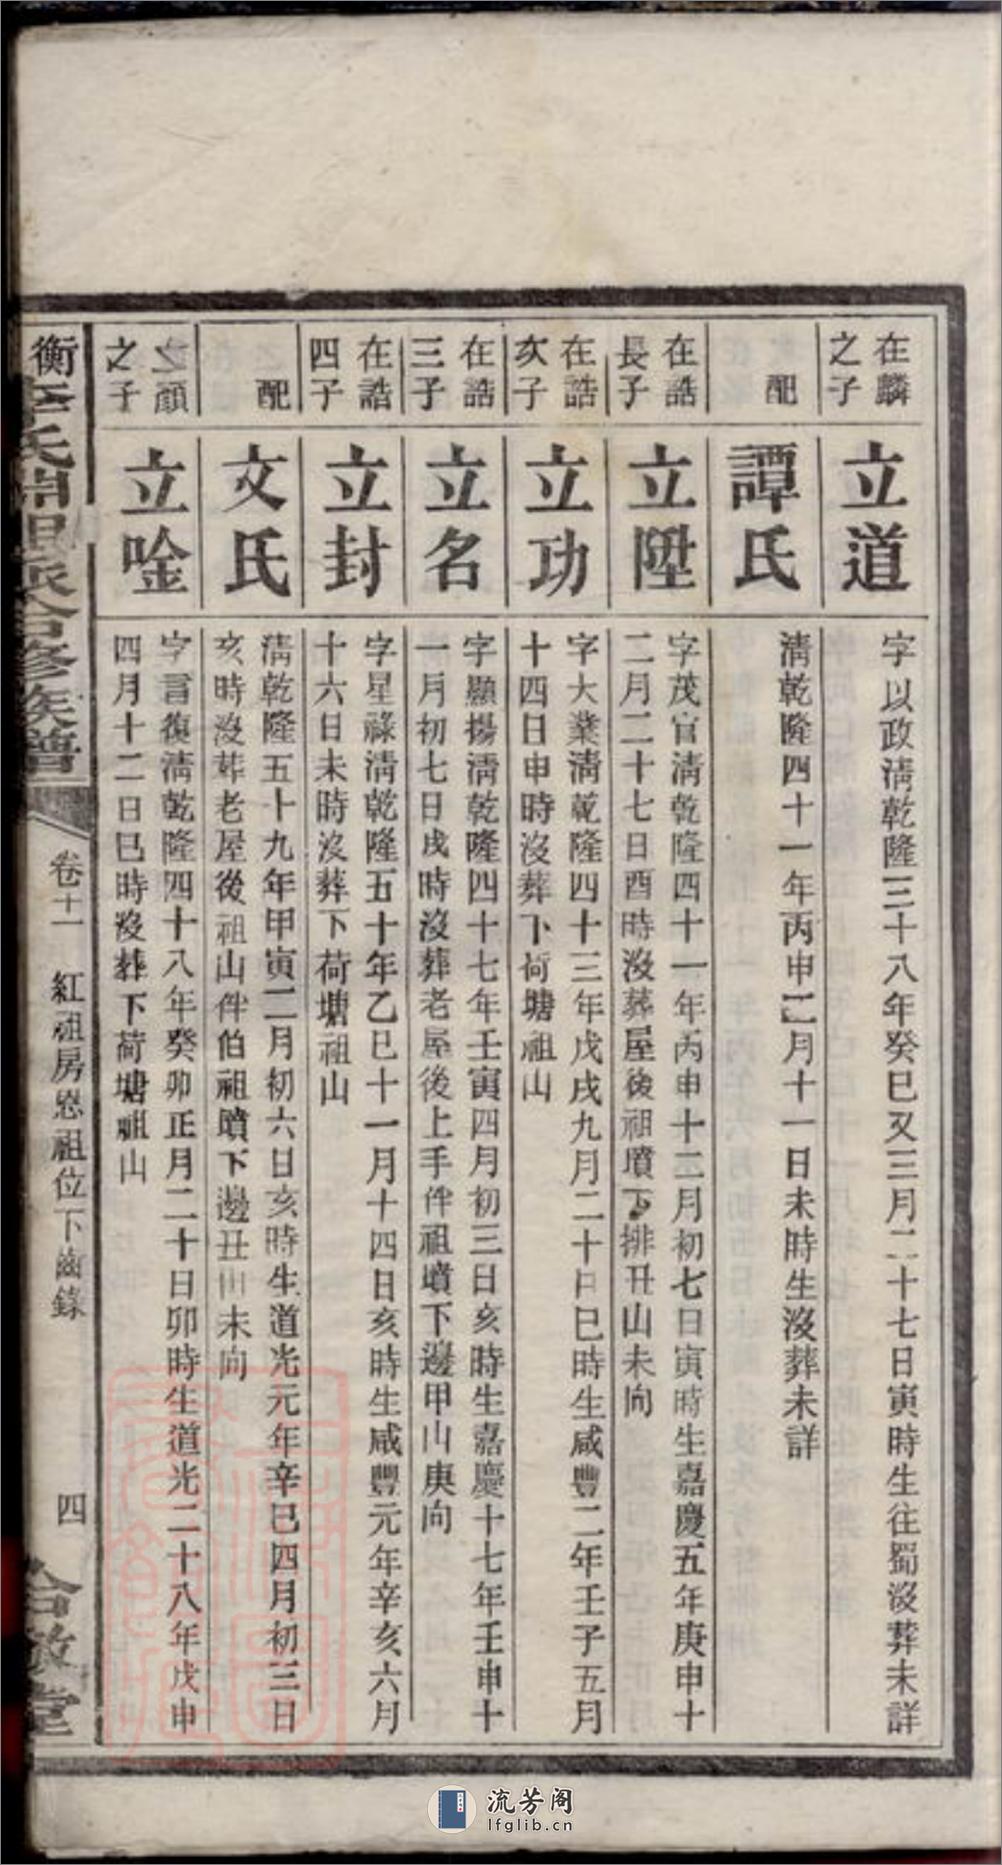 在麟
之子
立道
字以政淸乾隆三十八年癸巳又三月二十七日寅時生往蜀沒葬未詳
配
譚氏
淸乾隆四十一年丙申二月十一日未時生沒葬未詳
在誥
長子
立陞
字茂官淸乾隆四十一年丙申十二月初七日寅時生嘉慶五年庚申十
二月二十七日酉時沒葬屋後祖墳下排丑山未向
在誥
次子
立功
字大業淸乾隆四十三年戊戌九月二十日巳時生咸豐二年壬子五月
十四日申時沒葬下荷塘祖山
在誥
三子
立名
字顯揚淸乾隆四十七年壬寅四月初三日亥時生嘉慶十七年壬申十
一月初七日戌時沒葬老屋後上手伴祖墳下邊甲山庚向
在誥
四子
立封
字星祿淸乾隆五十年乙巳十一月十四日亥時生咸豐元年辛亥六月
十六日未時沒葬下荷塘祖山
配
文氏
淸乾隆五十九年甲寅二月初六日亥時生道光元年辛巳四月初三日
亥時沒葬老屋後祖山伴伯祖墳下邊丑山未向
顔
之子
立唫
字言復淸乾隆四十八年癸卯正月二十日卯時生道光二十八年戊申
四月十二日巳時沒葬下荷塘祖山
衡 李氏 合修族譜
卷十一 紅祖房 祖位下齒錄
四
堂
流芳阁
lfglib.cn